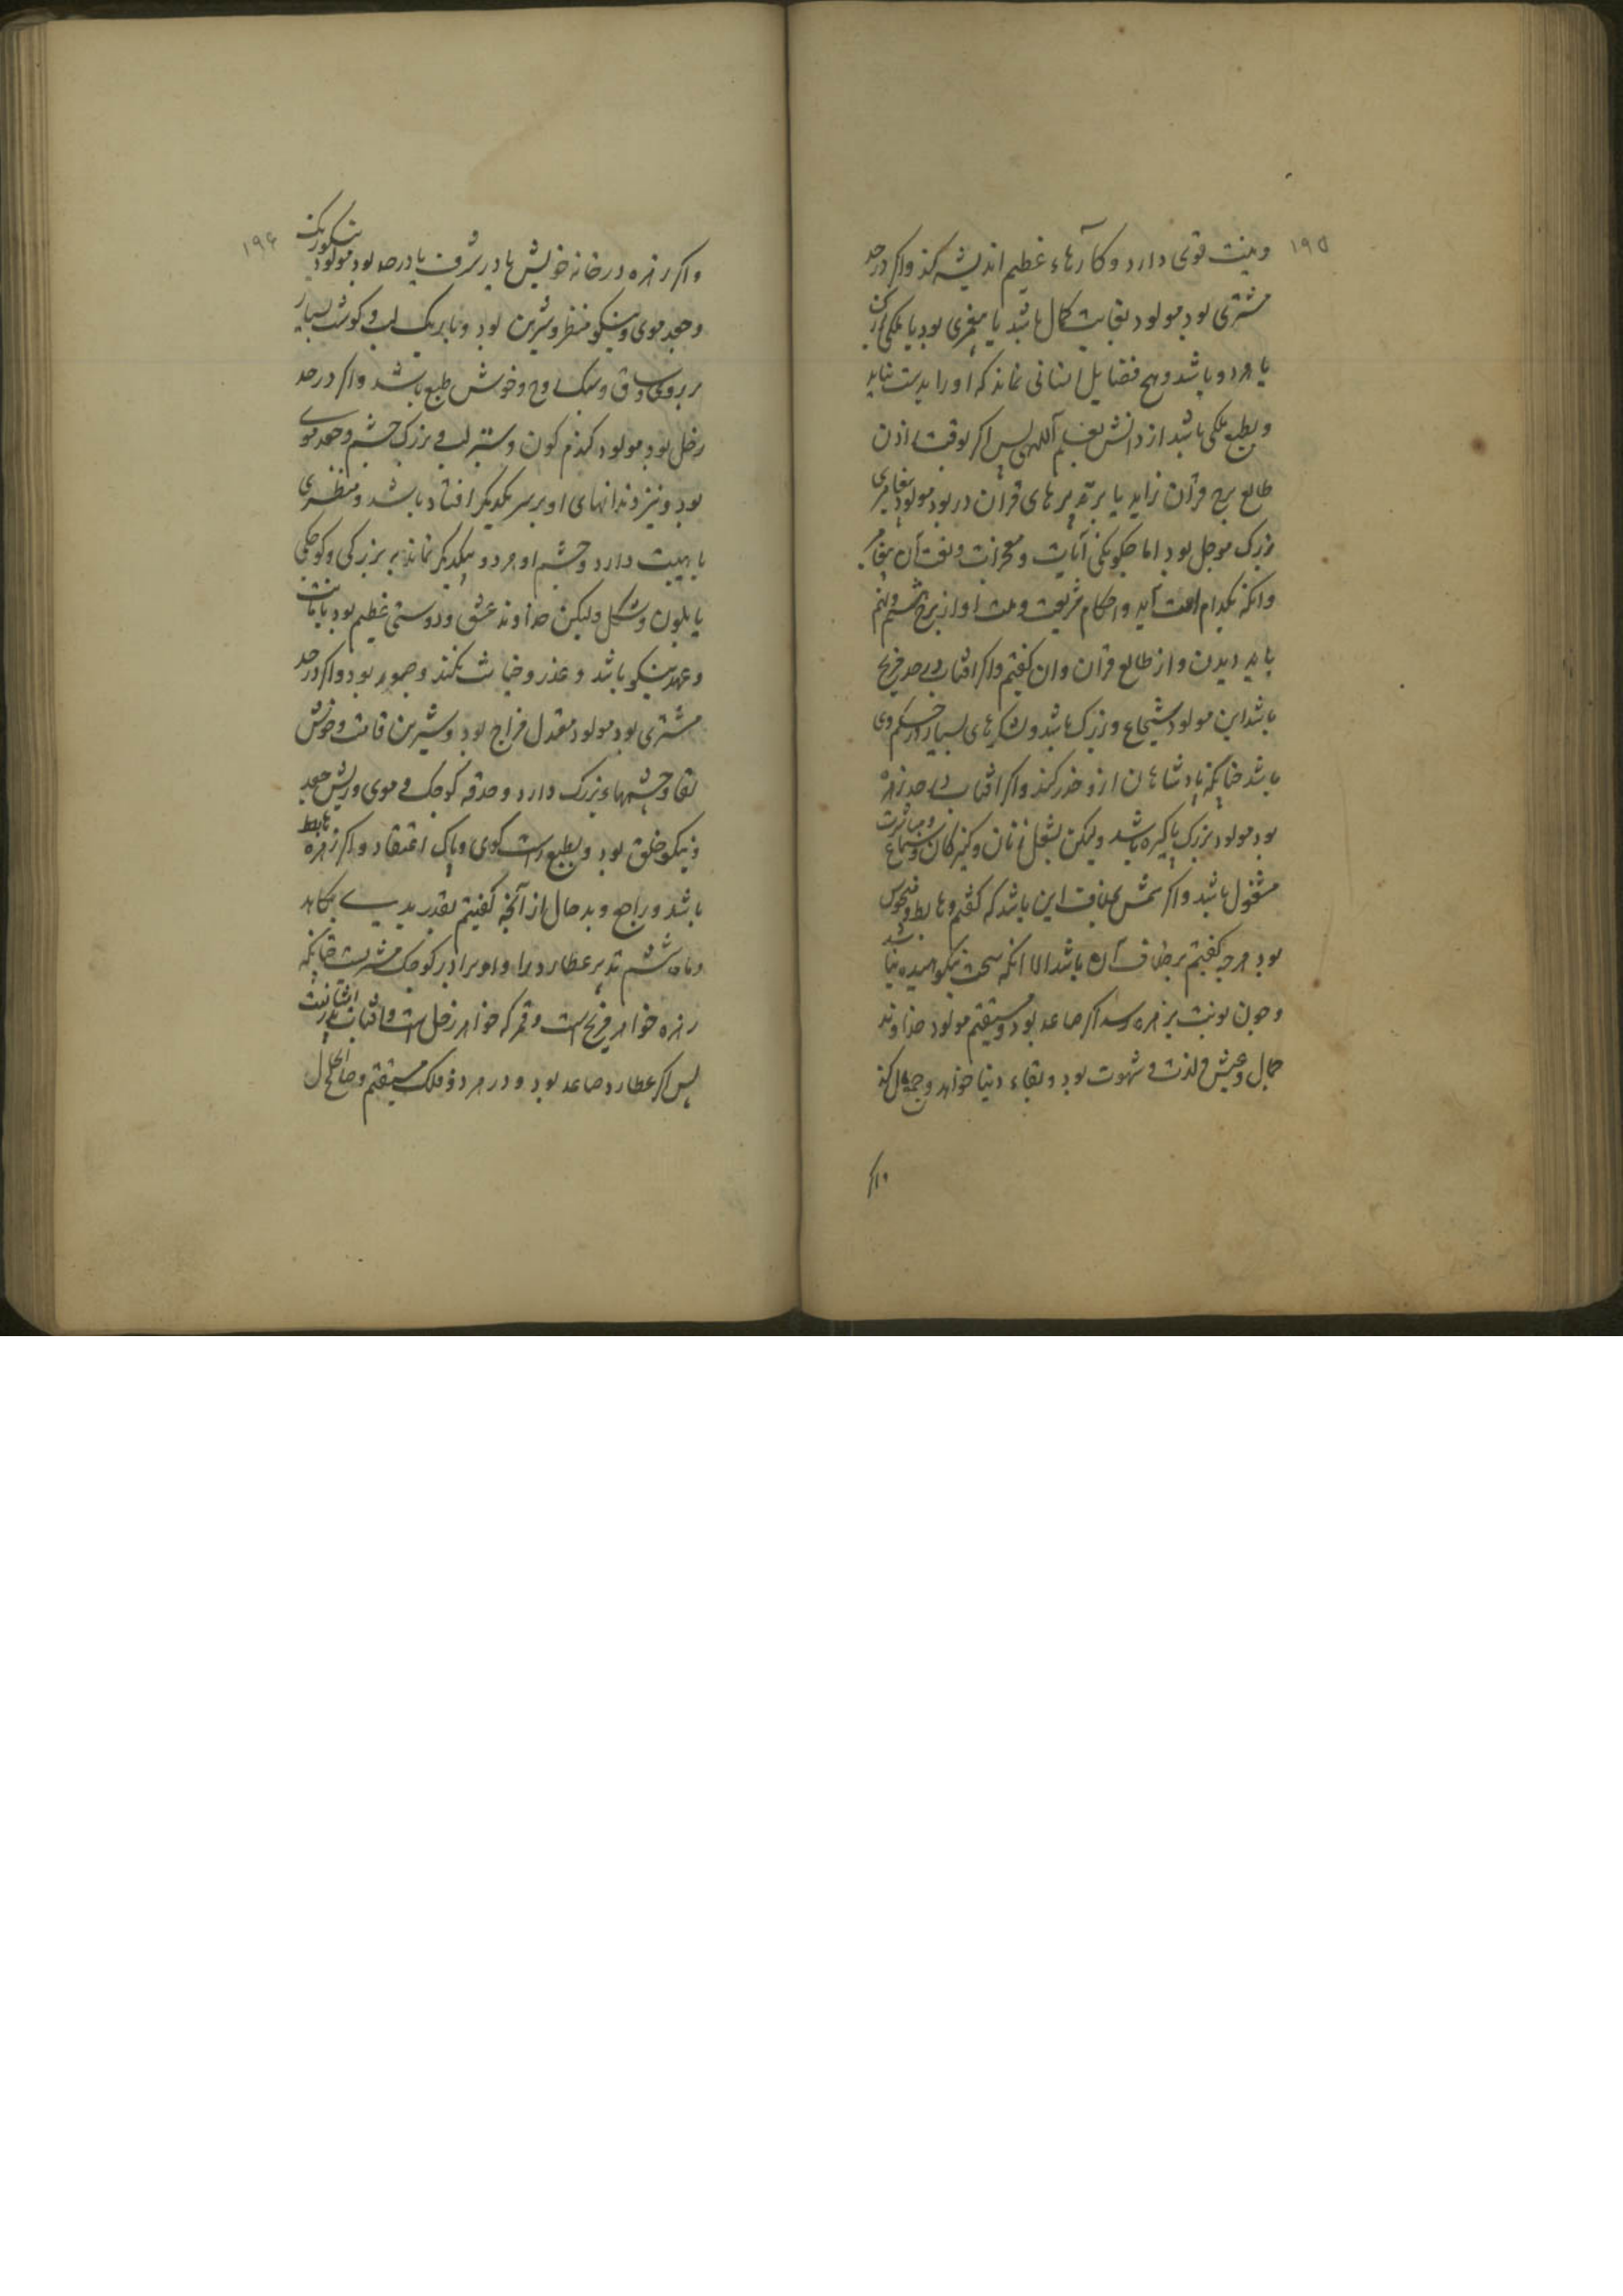 ۱۹۵
وهیت قوی دارد و کارهاء عظیم اندیشه کند واکر در حد
مشتری بود مولود بغایت کمال باشد یا پیغمبری بود یا ملکی بزرک
یا هر دو باشد و هیچ فضایل انسانی نماند که او را بدست نیاید
و بطبع ملکی باشد از دانش بعلم آلهی پس اکر بوقت
طالع برج قرآن زاید یا برتدبیرهای قرآن در بود مولود پیغامبری
بزرک مرسل بود اما چکونکی آیات و معجزات وبعث آن پیغامبر
وانکه بکدام امت آید واحکام شریعت وملت او از برج ششم ونهم
باید دیدن و از طالع قرآن وان کفتیم واکر افتاب در حد مریخ
باشد این مولود شجاع و بزرک باشد و لشکرهای بسیار در حکم وی
باشد چنانکه پادشاهان از و حذر کنند واکر افتاب در حد زهره
بود مولود بزرک پاکیزه باشد ولیکن بشغل زنان و کنیزکان و مباشرت و سماع
مشغول باشد واکر شمس بخلاف این باشد که کفتیم وهابط و منحوس
بود هر چه کفتیم برخلاف آن باشد الا انکه سخت نیکو باشد
وچون نوبت بزهره رسد اکر صاعد بود و مستقیم مولود خداوند
جمال وعیش و لذت و شهوت بود وبقاء دنیا خواهد وجمع مال کند
واکر
۱۹۶
واکر زهره در خانه خویش یا در شرف یا در حد بود مولود نیکو رنک
وجعد موی و نیکو منظر و شیرین بود و باریک لب و کوشت بسیار
بر روی و ساق و سبک روح و خوش طبع باشد واکر در حد
زحل بود مولود کندم کون و ستبر لب و بزرک چشم و جعد موی
بود و نیز دندانهای او بر سر یکدیکر افتاده باشد و منظری
با هیبت دارد و چشم او هر دو بیکدیکر نماند به بزرکی و کوچکی
یا بلون و شکل ولیکن خداوند عشق و دوستی عظیم بود با امانت
وعهد نیکو باشد و غدر و خیانت نکند و صبور بود واکر در حد
مشتری بود مولود معتدل مزاج بود و شیرین قامت و خوش
لقا و چشمهاء بزرک دارد و حدقه کوچک و موی و ریش جعد
ونیکو خلق بود و بطبع راست کوی و پاک اعتقاد واکر زهره هابط
باشد و راجع و بد حال از آنچه کفتیم بقدر بدی بکاهد
وماه ششم تدبیر عطارد را و او برادر کوچک مشتریست چنانکه
زهره خواهر مریخ است و قمر که خواهر زحل است و افتاب پدر ایشانست
پس اکر عطارد صاعد بود و در هر دو فلک مستقیم و صالح الحال